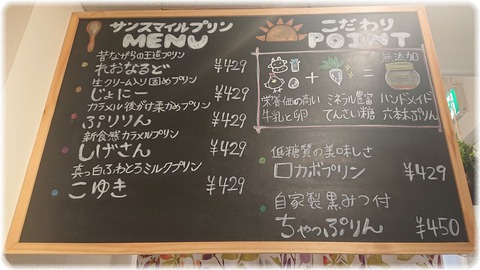 サンスマイルプリン
MENU
昔ながらの王道プリン
れおなるど ¥429
生クリーム入り固めプリン
じょにー ¥429
カラメル後がけ柔かめプリン
ぷりりん ¥429
新食感カラメルプリン
しげさん ¥429
真っ白ふわとろミルクプリン
こゆき ¥429
こだわり
POINT
無添加
+
栄養価の高い
牛乳と卵
ミネラル豊富
てんさい糖
ハンドメイド
六本木ぷりん
低糖質の美味しさ
ロカボプリン ¥429
自家製黒みつ付
ちゃっぷりん ¥450